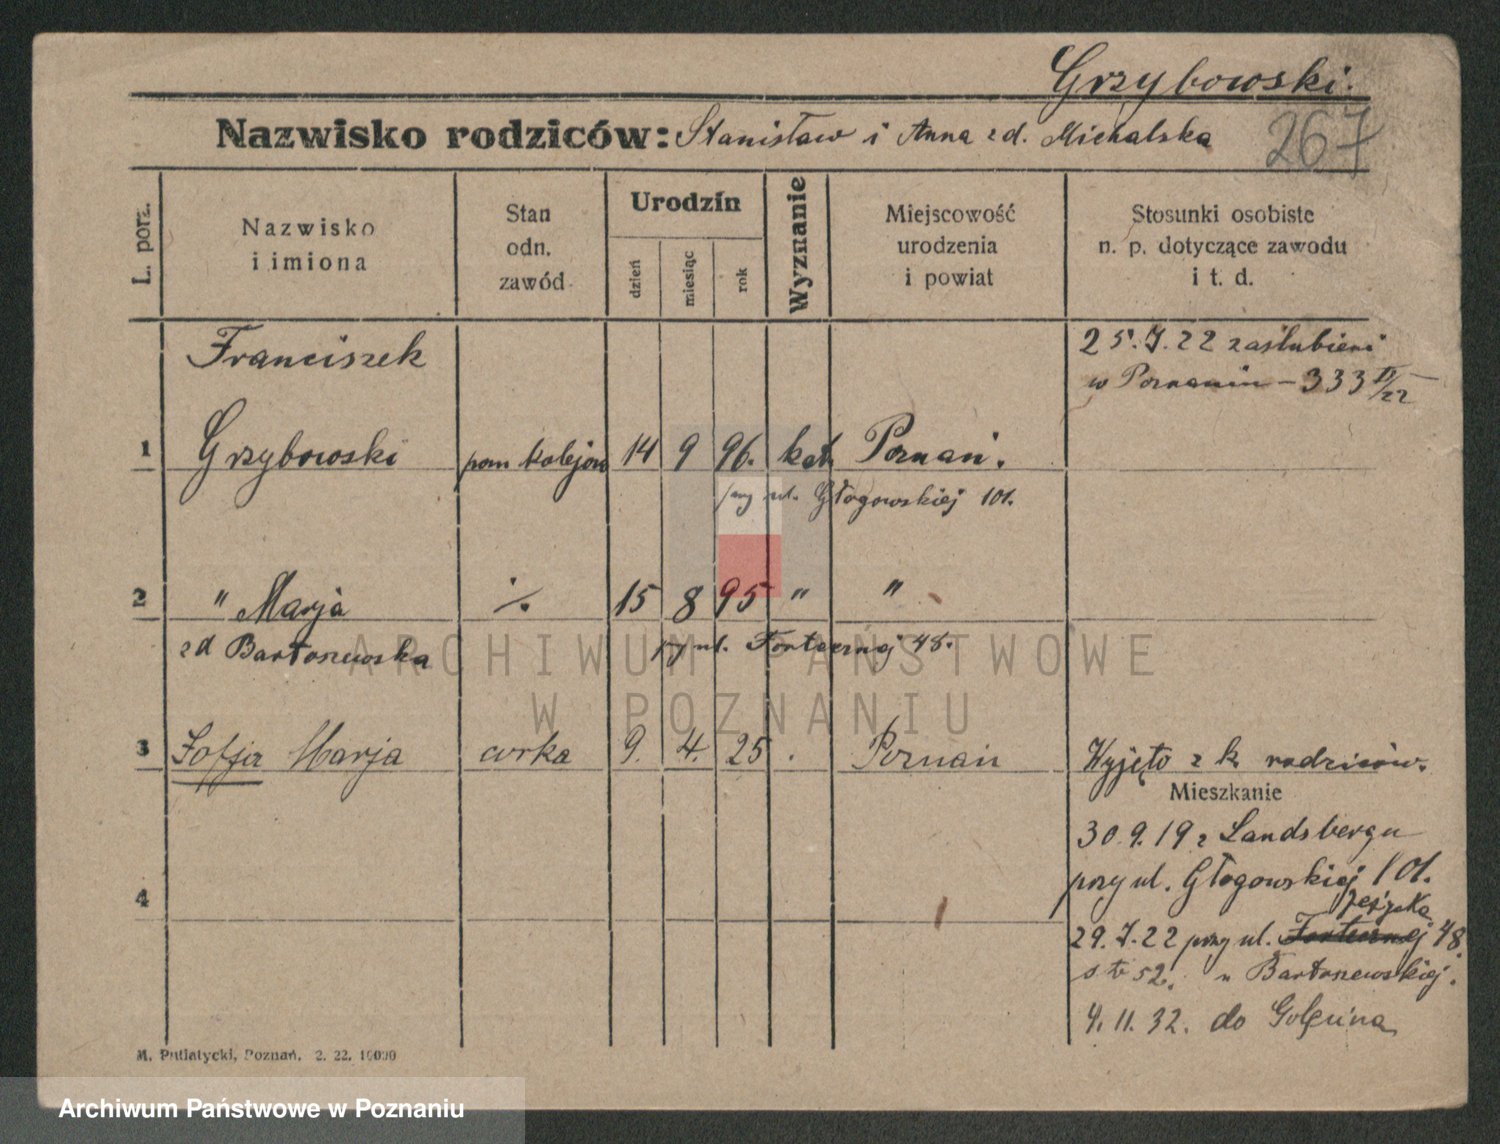 Grzybowski.
Nazwisko rodziców: Stanisław i Anna zd. Michalska
267
L. porz.
Nazwisko
i imiona
Stan
odn.
zawód
Urodzin
dzień
miesiąc
rok
Wyznanie
Miejscowość
urodzenia
i powiat
Stosunki osobiste
n. p. dotyczące zawodu
i t. d.
Franciszek
25.7.22 zaślubieni
w Poznaniu - 333 /22
1 Grzybowski pom kolejow 14 9 96. kat. Poznań.
przy ul. Głogowskiej 101.
2 " Marja ·/. 15 8 95 " "
zd Bartoszewska
przy ul. Fortecznej 48.
ARCHIWUM PAŃSTWOWE
W POZNANIU
3 Zofja Marja córka 9. 4. 25 . Poznań Wyjęto z k. rodziców.
Mieszkanie
30.9.19 z Landsbergu
przy ul. Głogowskiej 101.
4
29.7.22 przy ul. Fortecznej 48.
52. u Bartoszewskiej.
4.11.32. do Golęcina
M. Putiatycki, Poznań. 2. 22. 10000
Archiwum Państwowe w Poznaniu